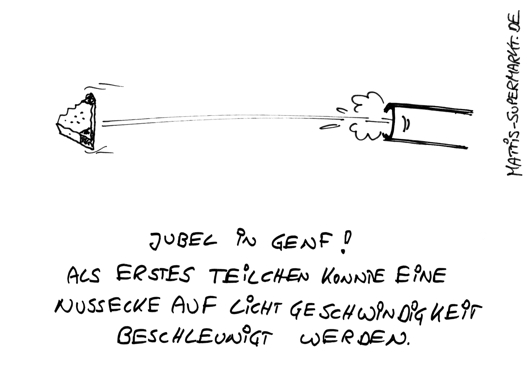 MATTIS-SUPERMARKT.DE
JUBEL IN GENF!
ALS ERSTES TEILCHEN KONNTE EINE
NUSSECKE AUF LICHTGESCHWINDIGKEIT
BESCHLEUNIGT WERDEN.